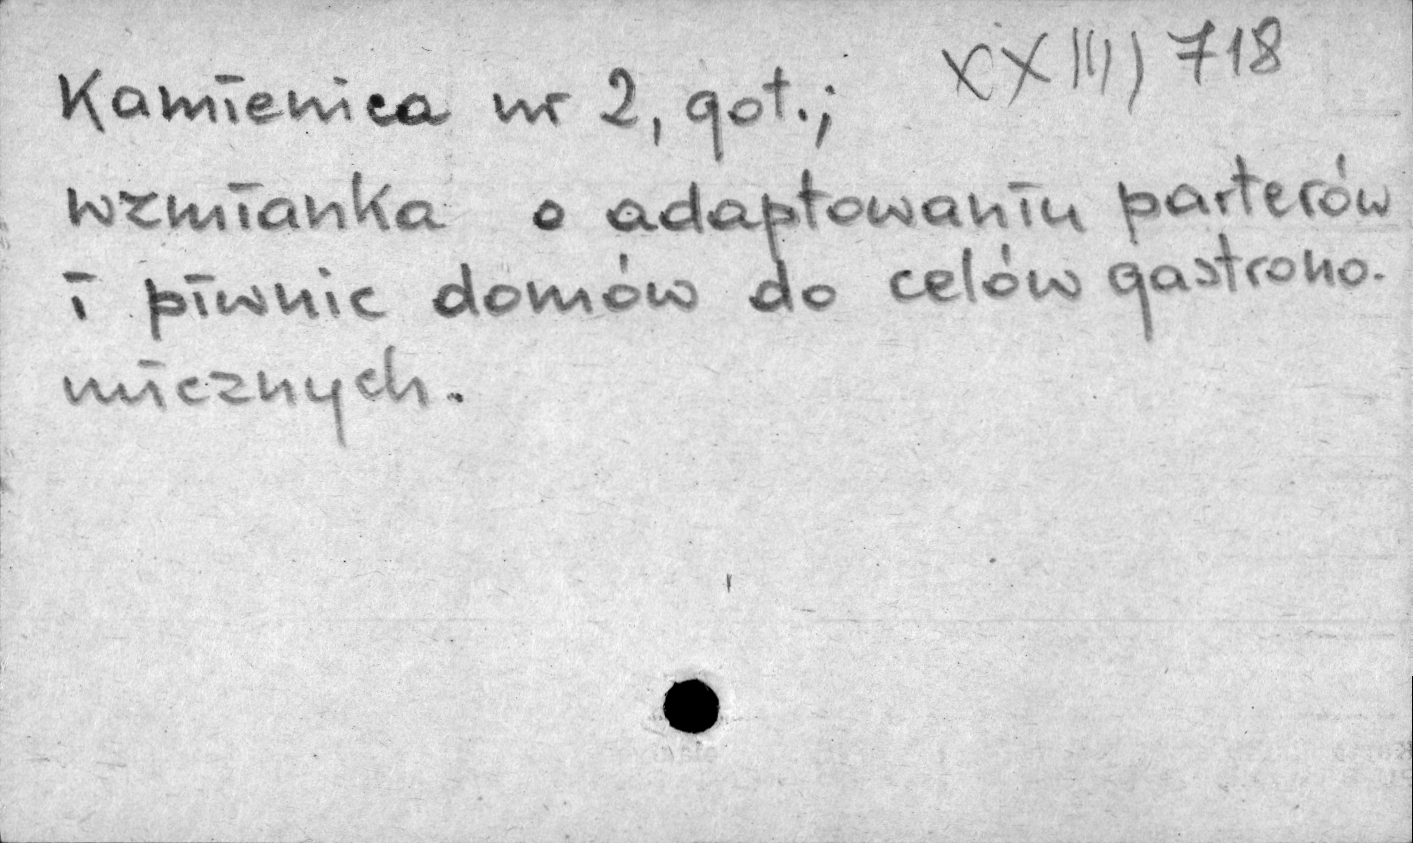 XXIII) 718
Kamienica nr 2, got.;
wzmianka o adaptowaniu parterów
i piwnic domów do celów gastrono-
micznych.